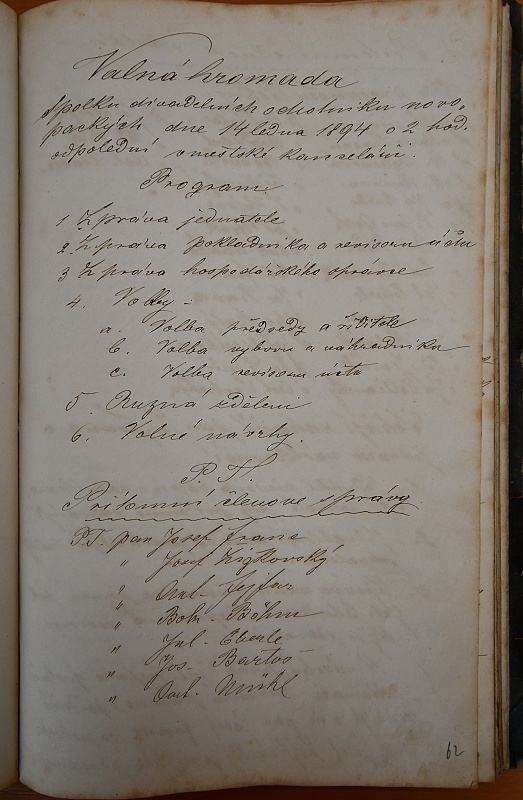 Valná hromada
spolku divadelních ochotníku novo-
packých dne 14 ledna 1894 o 2 hod.
odpolední v městské kanceláři.
Program
1 Zpráva jednatele
2. Zpráva pokladníka a revisorů účtu
3 Zpráva hospodářského správce
4. Volby:
a. Volba předsedy a ředitele
b. Volba výboru a náhradníka
c. Volba revisorů účtu
5. Ruzná sdělení
6. Volné návrhy.
P. T.
Přítomní členove správy
P.T. pan Josef Franc
" Josef Žižkovský
" Ant. Fejfar
" Boh. Böhm
" Jul. Eberle
" Jos. Bartoš
" Ant. Mühl
62